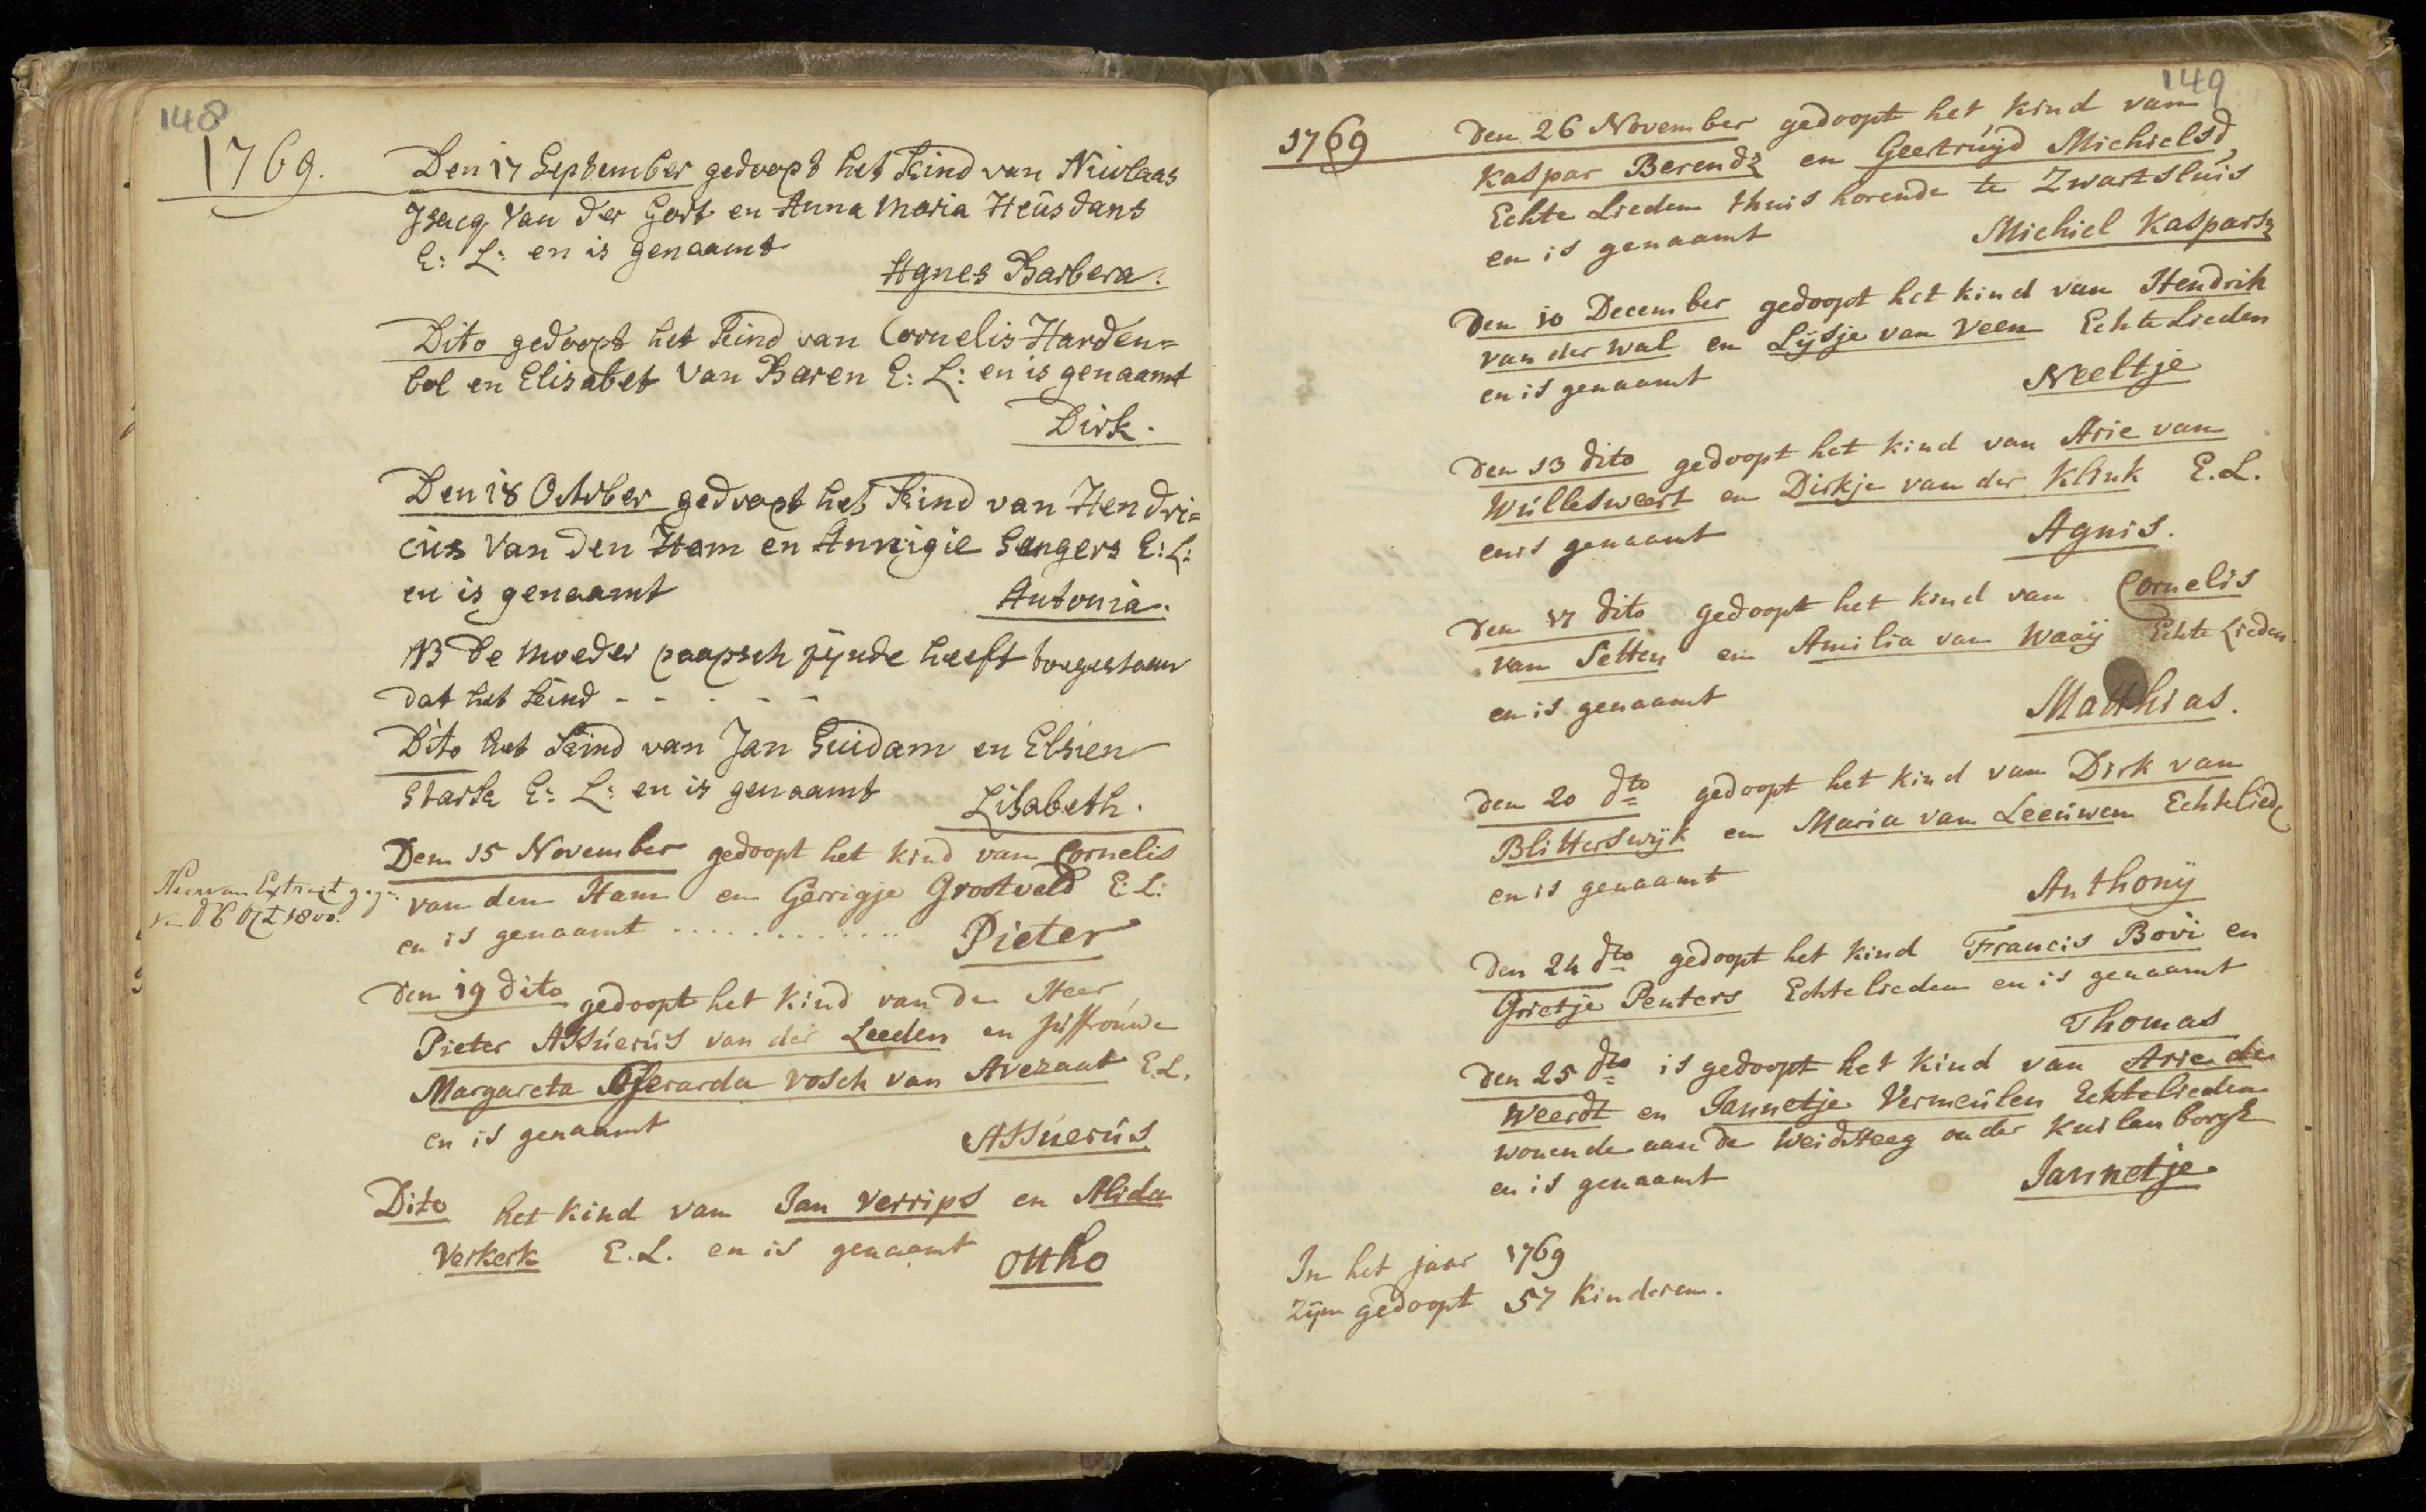 148
1769.
Den 17 September gedoopt het Kind van Nicolaas
Jsacq Van der Gort en Anna Maria Heusdans
E: L: en is genaamt
Agnes Barbera.
Dito gedoopt het Kind van Cornelis Harden=
bol en Elisabet Van Baren E: L: en is genaamt
Dirk.
Den 18 October gedoopt het Kind van Hendri=
cus Van den Ham en Annigie Sangers E: L:
en is genaamt
Antonia.
NB De moeder paapsch zijnde heeft toegestaan
dat het kind - - - - -
Dito het Kind van Jan Guidam en Elsien
Stark E: L: en is genaamt
Lisabeth.
Den 15 November gedoopt het kind van Cornelis
van den Ham en Gerrigje Grootveld E: L:
en is genaamt .............
Pieter
Hiervan Extract geg:
den 6 Oct 1800.
den 19 dito gedoopt het kind van de Heer
Pieter Assuerús van der Leeden en Juffrouwe
Margareta Gerarda vosch van Avezaat E. L.
en is genaamt
Assuerús
Dito het kind van Jan Verrips en Alida
Verkerk E. L. en is genaamt
Ottho
149
1769
Den 26 November gedoopt het kind van
Kaspar Berendz en Geertruijd Michielsd,
Echte Lieden thuis horende te Zwartsluis
en is genaamt
Michiel Kasparsz
Den 10 December gedoopt het kind van Hendrik
van der Wal en Lijsje van Veen Echte Lieden
en is genaamt
Neeltje
Den 13 dito gedoopt het kind van Arie van
Wúllesweert en Dirkje van der Klink E. L.
en is genaamt
Agnis.
Den 17 dito gedoopt het kind van Cornelis
van Setten en Amilia van Waaij Echte Lieden
en is genaamt
Matthias.
Den 20 dto gedoopt het kind van Dirk van
Blitterswijk en Maria van Leeúwen Echteliede
en is genaamt
Anthonij
Den 24 dto gedoopt het kind Francis Bovi en
Grietje Penters Echtelieden en is genaamt
Thomas
Den 25 dto is gedoopt het kind van Arie de
Weerdt en Jannetje Vermeúlen Echtelieden
wonende aan de Weidsteeg onder Kuilenborgh
en is genaamt
Jannetje
In het jaar 1769
Zijn gedoopt 57 kinderen.